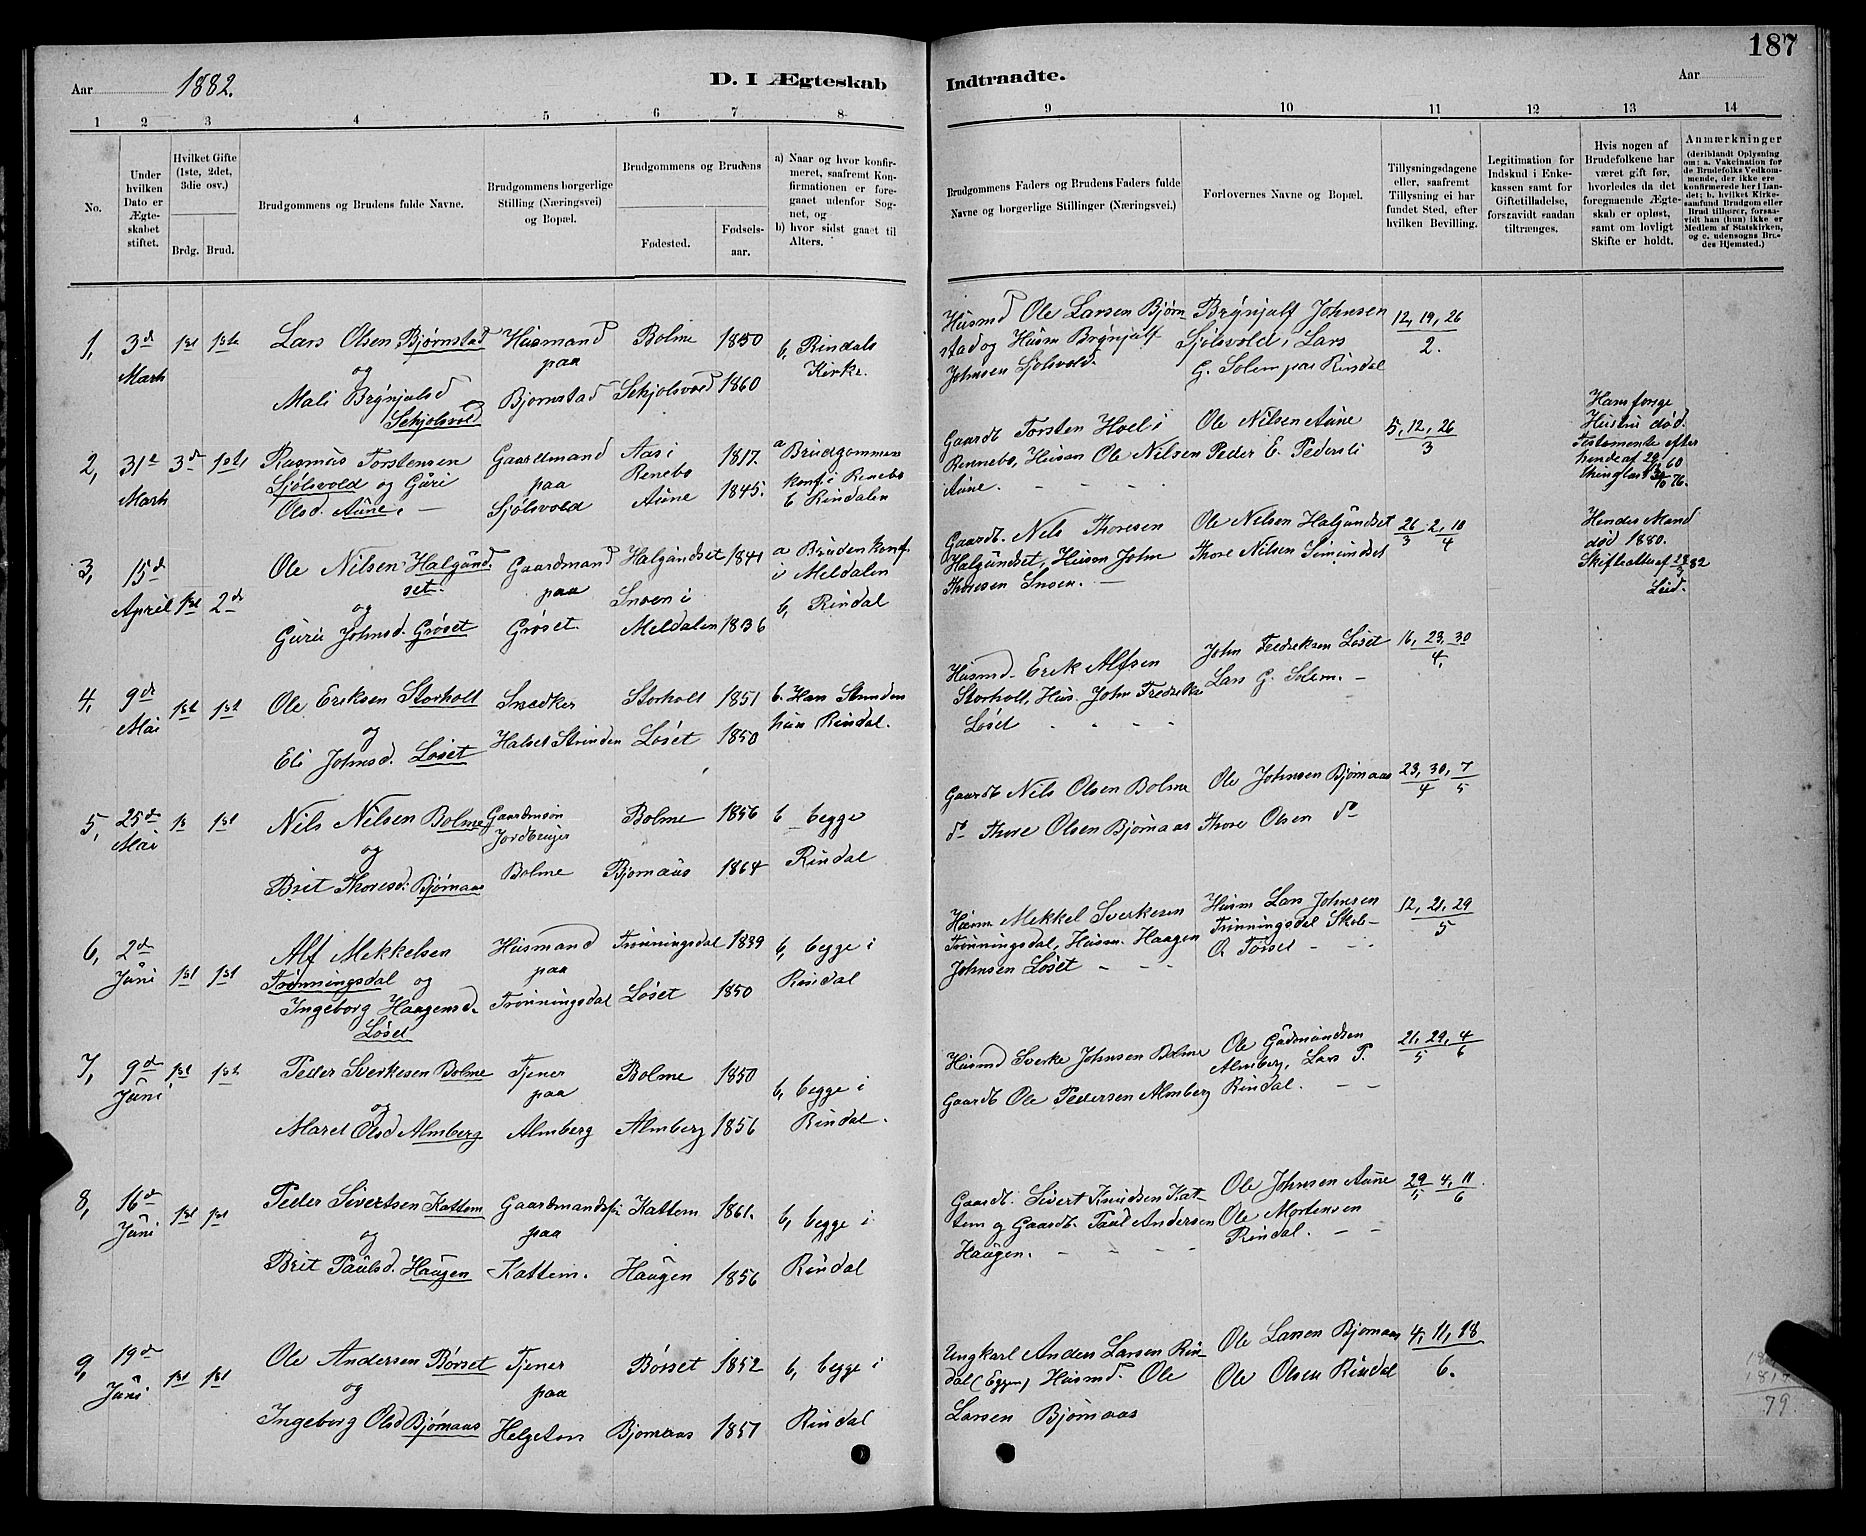 187
Aar 1882.
D. I Ægteskab Indtraadte.
Aar
1 2 3 4 5 6 7 8 9 10 11 12 13 14
No.
Under hvilken Dato er Ægteskabet stiftet.
Hvilket Gifte (1ste, 2det, 3die osv.)
Brdg. Brud.
Brudgommens og Brudens fulde Navne.
Brudgommens borgerlige Stilling (Næringsvei) og Bopæl.
Brudgommens og Brudens
Fødested.
Fødselsaar.
a) Naar og hvor konfirmeret, saafremt Konfirmationen er foregaaet udenfor Sognet, og
b) hvor sidst gaaet til Alters.
Brudgommens Faders og Brudens Faders fulde Navne og borgerlige Stillinger (Næringsvei.)
Forlovernes Navne og Bopæl.
Tillysningsdagene eller, saafremt Tillysning ei har fundet Sted, efter hvilken Bevilling.
Legitimation for Indskud i Enkekassen samt for Giftetilladelse, forsaavidt saadan tiltrænges.
Hvis nogen af Brudefolkene har været gift før, hvorledes da det foregaaende Ægteskab er opløst, samt om lovligt Skifte er holdt.
Anmærkninger (deriblandt Oplysning om: a. Vakcination for de Brudefolks Vedkommende, der ikke ere konfirmerede her i Landet; b. hvilket Kirkesamfund Brudgom eller Brud tilhører, forsaavidt han (hun) ikke er Medlem af Statskirken, og c. udensogns Brudes Hjemsted.)
1, 3d Marh 1st 1ste
Lars Olsen Bjørnstad
og
Mali Brynjulsd
Sehjolsvold
Husmand
paa
Bjornstad
Bolme 1850
Sehjolsvold 1860
b, Rindals
Kirke.
Husmd Ole Larsen Bjørn
stad og Husm Brynjulf
Johnsen Sjølsvold.
Brynjulf Johnsen
Sjølsvold, Lars
G. Solem paa Rindal
12, 19, 26
2.
2, 31te Marh 3de 1ste
Rasmus Torstensen
Sjølsvold og Guri
Olsd. Aune. —
Gaardmand
paa
Sjølsvold
Aas i
Renebo 1817.
Aune 1845.
a Brudgommen
konf. i Renebo
b Rindalen
Gaardb. Torsten Hoel i
Rennebo, Husm Ole Nilsen
Aune. - - - -
Ole Nilsen Aune
Peder E. Pedersli
5, 12, 26
3
Hans forrige
Hustru død.
Testamente efter
hende af 29/12 60
3, 15d April 1st 2d
Ole Nilsen Halgund
set.
og
Guru Johnsd. Grøset
Gaardmand
paa
Grøset.
Halgundset 1841
Snoen i
Meldalen 1836
a Bruden konf.
i Meldalen
b, Rindal
Gaardb. Nils Thoresen
Halgundset, Husm John
Thoresen Snoen. —
Ole Nilsen Halgundset
Thore Nilsen Simundset
26, 2, 10
3 4
Hendes Mand
død 1880.
4, 9de Mai 1st 1st
Ole Eriksen Storholt
og
Eli Johnsd. Løset
Snedker
Halset Strinden
Storholt 1851
Løset 1850
b. Han Strinden
hun Rindal.
Husmd. Erik Alfsen
Storholt, Hus. John Fredrikse
Løset - - - -
John Fredriksen Løset
Lars G. Solem. -
16, 23, 30
4,
5, 25de Mai 1s 1st
Nils Nilsen Bolme
og
Brit Thoresd. Bjørnaas
Gaardmsøn
Jordbruger
Bolme
Bolme 1856
Bjornaas 1864
b begge
Rindal
Gaardb Nils Olsen Bolme
do Thore Olsen Bjørnaas
Ole Johnsen Bjørnaas
Thore Olsen do
23, 30, 7
4 5
6, 2d Juni 1st 1st
Alf Mekkelsen
Trønningsdal og
Ingeborg Haagensd.
Løset
Husmand
paa
Trønningsdal
Trønningsdal 1839
Løset 1850
b, begge i
Rindal
Husm. Mekkel Sverkesen
Trønningsdal, Husm. Haagen
Johnsen Løset - - -
Husm Lars Johnsen
Trønningsdal
O Torset - - -
12, 21, 29
5
7, 9d Juni 1st 1st
Peder Sverkesen Bolme
og
Maret Olsd Almberg
Tjener
paa
Almberg
Bolme 1850
Almberg 1856
b, begge i
Rindal.
Husmd Sverke Johnsen Bolme
Gaardb Ole Pedersen Almberg
Ole Gudmundsen
Almberg, Lars P.
Rindal. - -
21, 29, 4
5 6
8, 16d Juni 1st 1st
Peder Sivertsen Kattem
og
Brit Paulsd. Haugen
Gaardmands
paa
Kattem.
Kattem 1861.
Haugen 1856
b, begge i
Rindal
Gaardb. Sivert Knudsen Kat-
tem og Gaardb. Paul Andersen
Haugen. - - - -
Ole Johnsen Aune
Ole Mortensen
Rindal. - -
29, 4, 11
5 6
9, 19de Juni 1st 1st
Ole Andersen Børset
og
Ingeborg Olsd Bjørnaas
Tjener
paa
Helgeton
Børset 1852
Bjornaas 1857
b, begge i
Rindal
Ungkarl Anders Larsen Rin-
dal (Eggen) Husmd. Ole
Larsen Bjørnaas
Ole Larsen Bjornaas
Ole Olsen Rindal
4, 11, 18
6.
79